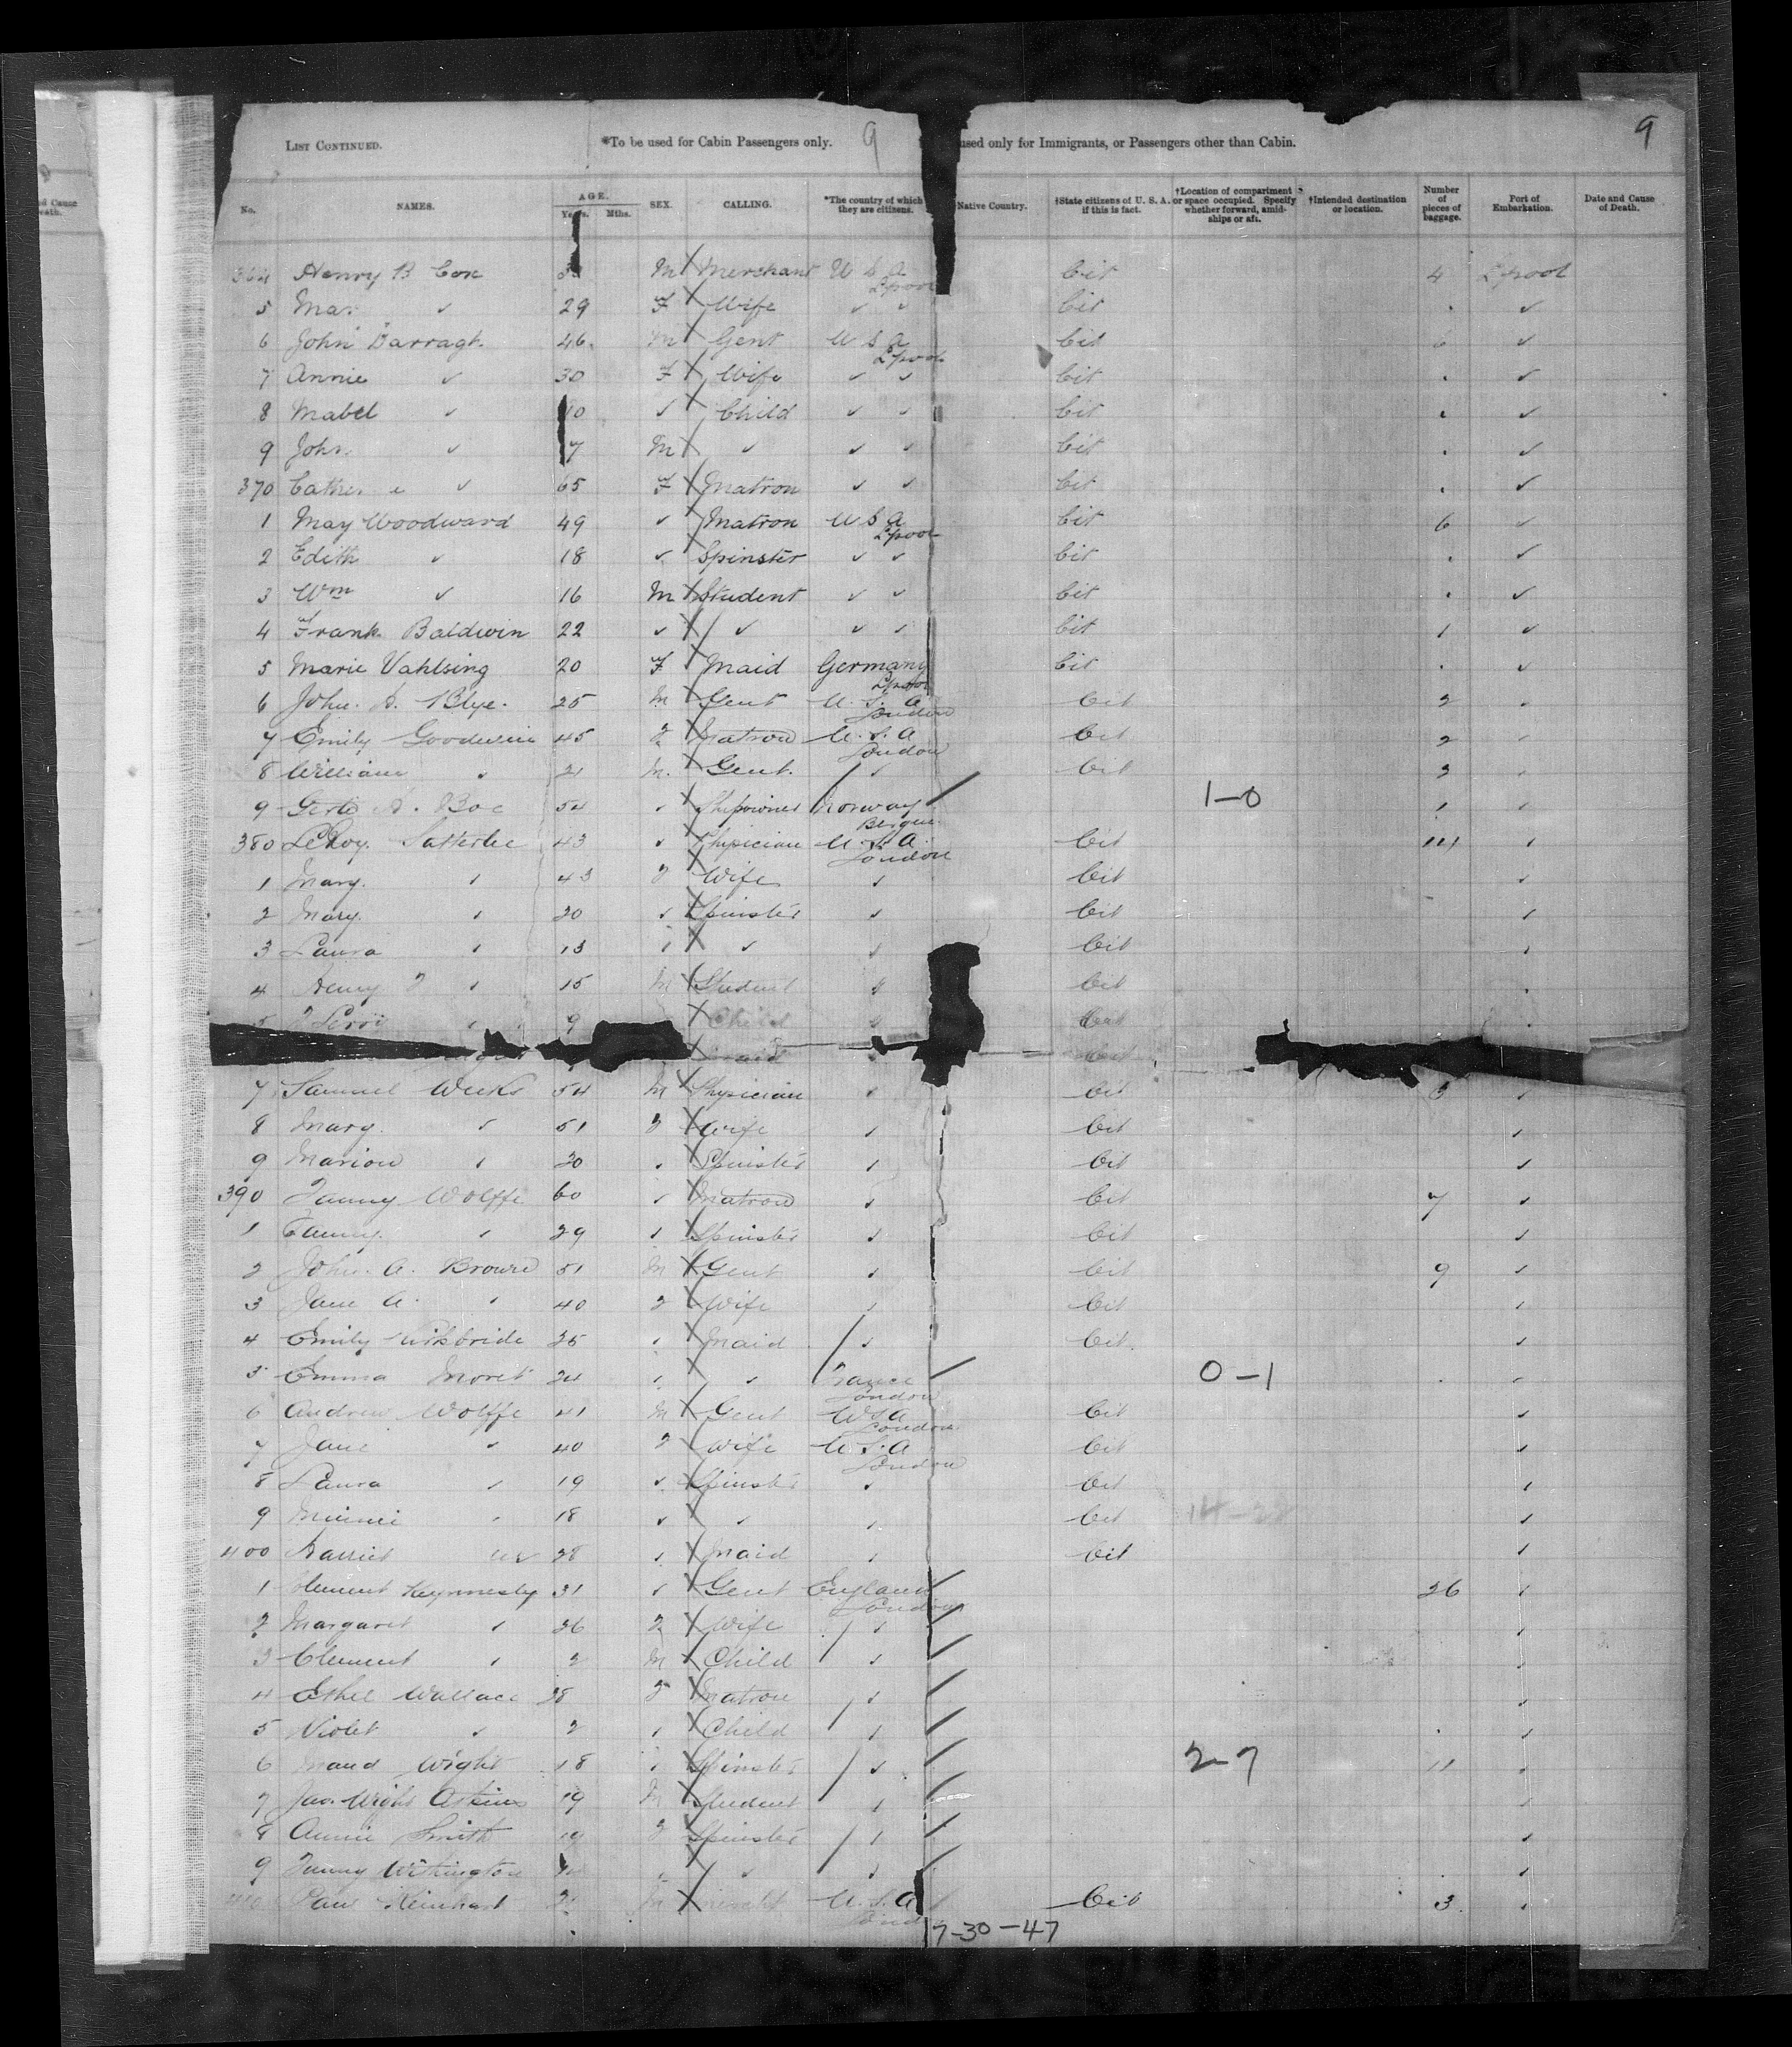 LIST CONTINUED. *To be used for Cabin Passengers only. 9 used only for Immigrants, or Passengers other than Cabin. 9
No. NAMES. AGE. Years. Mths. SEX. CALLING. *The country of which they are citizens. Native Country. †State citizens of U. S. A. if this is fact. †Location of compartment or space occupied. Specify whether forward, amidships or aft. †Intended destination or location. Number of pieces of baggage. Port of Embarkation. Date and Cause of Death.
364 Henry B Cox M Merchant U S A L'pool Cit 4 L'pool
5 29 F Wife ✓ ✓ Cit ✓
6 John Darragh 46 M Gent U S A L'pool Cit 6 ✓
7 Annie ✓ 30 F Wife ✓ ✓ Cit ✓
8 Mabel ✓ 10 ✓ Child ✓ ✓ Cit ✓
9 John ✓ 7 M ✓ ✓ ✓ Cit ✓
370 ✓ 65 F Matron ✓ ✓ Cit ✓
1 May Woodward 49 ✓ Matron U S A L'pool Cit 6 ✓
2 Edith ✓ 18 ✓ Spinster ✓ ✓ Cit ✓
3 Wm ✓ 16 M Student ✓ ✓ Cit ✓
4 Frank Baldwin 22 ✓ ✓ ✓ ✓ Cit 1 ✓
5 Marie Vahlsing 20 F Maid Germany L'pool Cit ✓
6 John. D. Blye. 25 M Gent U. S. A London Cit 2 ✓
7 Emily Goodwin 45 F Matron U. S. A London Cit 2 ✓
8 William ✓ 21 M. Gent. ✓ Cit 2 ✓
9 54 ✓ Shipowner Norway Bergen 1-0 1 ✓
380 LeRoy Satterlee 43 ✓ Physician U. S. A. London Cit 14 ✓
1 Mary. ✓ 43 F Wife ✓ Cit ✓
2 Mary. ✓ 20 ✓ Spinster ✓ Cit ✓
3 Laura ✓ 13 ✓ ✓ ✓ Cit ✓
4 Henry F ✓ 15 M Student ✓ Cit
5 ✓ 9 Child ✓ Cit
Maid ✓ Cit
7 Samuel Weeks 54 M Physician ✓ Cit 5 ✓
8 Mary. ✓ 51 F Wife ✓ Cit ✓
9 Marion ✓ 20 ✓ Spinster ✓ Cit ✓
390 Fanny Wolffe 60 ✓ Matron ✓ Cit 7 ✓
1 Fanny. ✓ 29 ✓ Spinster ✓ Cit ✓
2 John. A. Browne 51 M Gent ✓ Cit 9 ✓
3 Jane A. ✓ 40 F Wife ✓ Cit ✓
4 Emily Kirkbride 35 ✓ Maid ✓ Cit. ✓
5 Emma Moret 24 ✓ ✓ France London 0-1 ✓
6 Andrew Wolffe 41 M Gent U S A London Cit ✓
7 Jane ✓ 40 F Wife U S. A London Cit ✓
8 Laura ✓ 19 ✓ Spinster ✓ Cit ✓
9 Minnie ✓ 18 ✓ ✓ ✓ Cit ✓
400 Harriet 28 ✓ Maid ✓ Cit ✓
1 Clement Keynnersly 31 ✓ Gent England London 26 ✓
2 Margaret ✓ 26 F Wife ✓ ✓
3 Clement ✓ 2 M Child ✓ ✓
4 Ethel Wallace 28 F Matron ✓ ✓
5 Violet ✓ 2 ✓ Child ✓ ✓
6 Maud Wight 18 ✓ Spinster ✓ 2-7 11 ✓
7 Jas. Wight 19 M Student ✓ ✓
8 Annie Smith 19 F Spinster ✓ ✓
9 Fanny Withington ✓ ✓ ✓ ✓
410 Paul Reinhart M U. S. A Cit 3 ✓
7-30-47